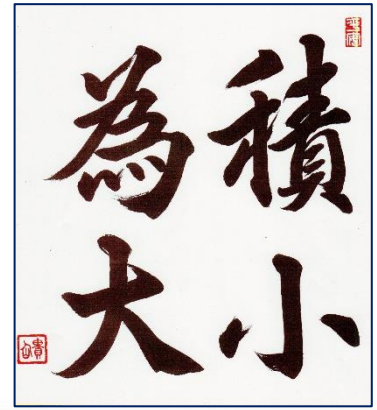 積小
為大